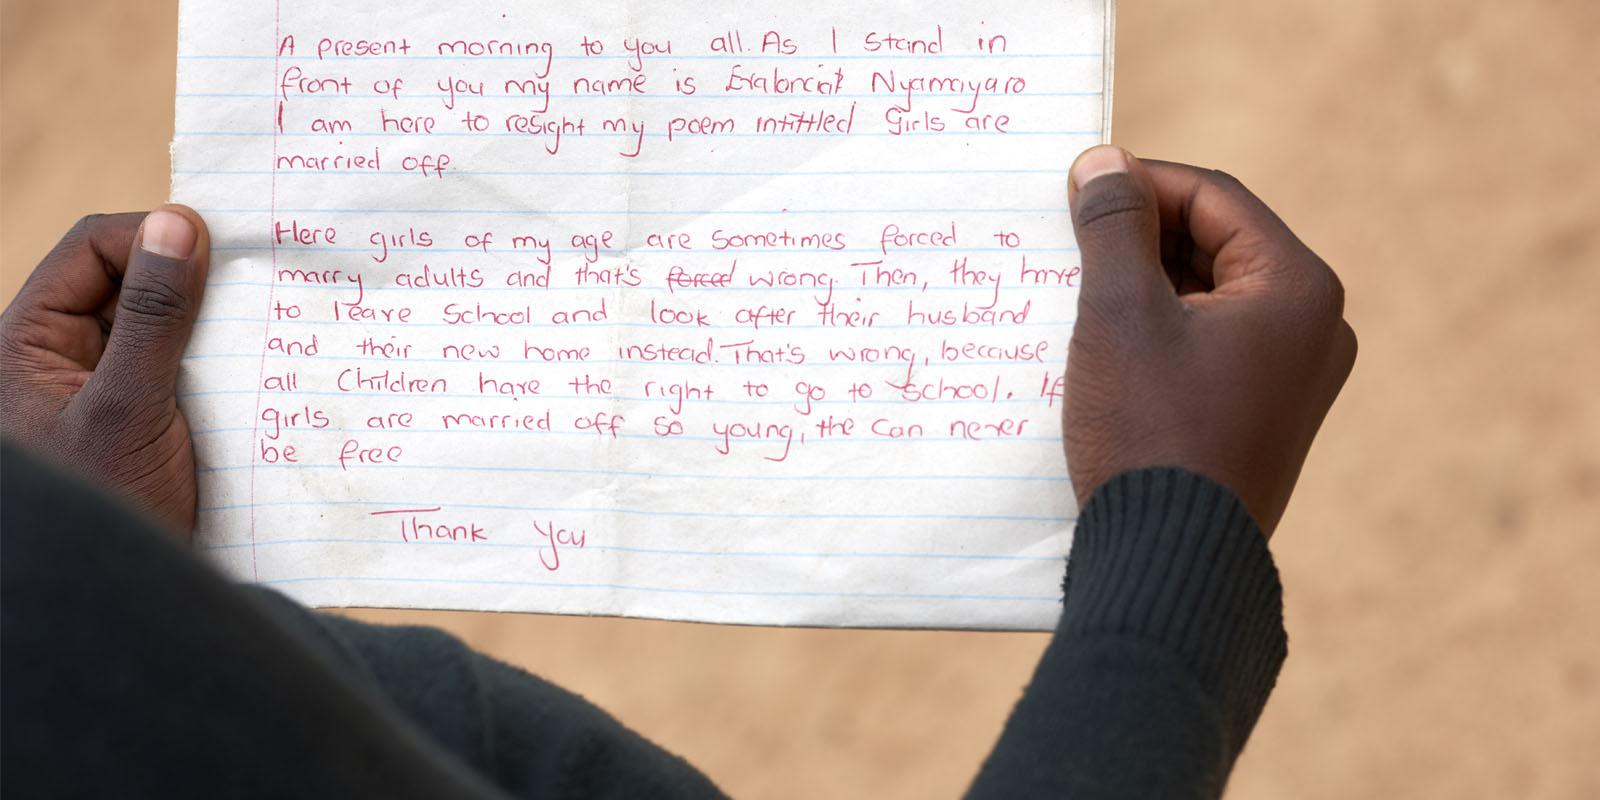 A present morning to you all. As I stand in
front of you my name is Nyamayaro
I am here to resight my poem intittled Girls are
married off.
Here girls of my age are sometimes forced to
marry adults and that's forced wrong. Then, they have
to leave School and look after their husband
and their new home instead. That's wrong, because
all Children have the right to go to school. If
girls are married off so young, the can never
be free
Thank you